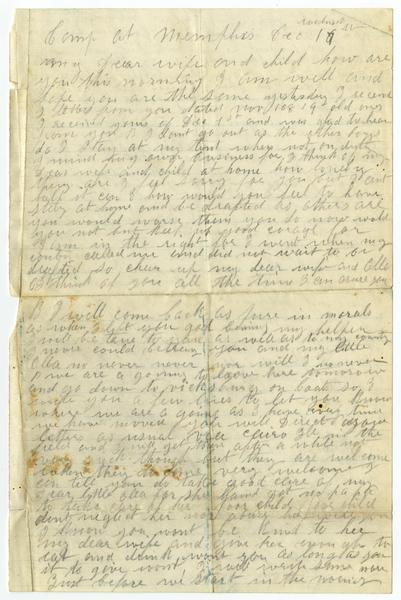 Camp at Memphis Dec 17
my dear wife and child how are
you this morning I am well and
hope you are the same yesterday I receive
letters from you dated nov 18 & 19 old ones
I received yours of Dec 1st and was glad to hear
from you I dont go out as the other boys
do I stay at my tent when not on duty
I mind my own business for I think of my
dear wife and child at home how lonely
they are I feel sorry for you but I cant
help it can I how would you feel to have
stay at home and be drafted as others are
you would worse then you do now would
you not but keep up good corage for
I am in the right for I went when my
country called me and did not wait to be
drafted so cheer up my dear wife and Ella
I think of you all the time I am away
I will come back as pure in morals
as when I left you god being my helper
I will be true to you as well as to my country
I never could betray you and my little
Ella no never never you will I
we are a going to leave here tomorrow
and go down to vicksburg on boat so I
write you a few lines to let you know
where we are a going as I have every time
we have moved you will Direct
letters as usual via Cairo Ill
and I will get them after a while not
very quick though but they are welcome
when they do come very welcome I
can tell you do take good care of my
dear little Ella for she has got no papa
to take care of her poor child
dont neglect her
I know you wont be kind to her
my dear wife and give her enough to
eat and drink wont you as long as you
it to give wont I will write some more
Just before we start in the morning